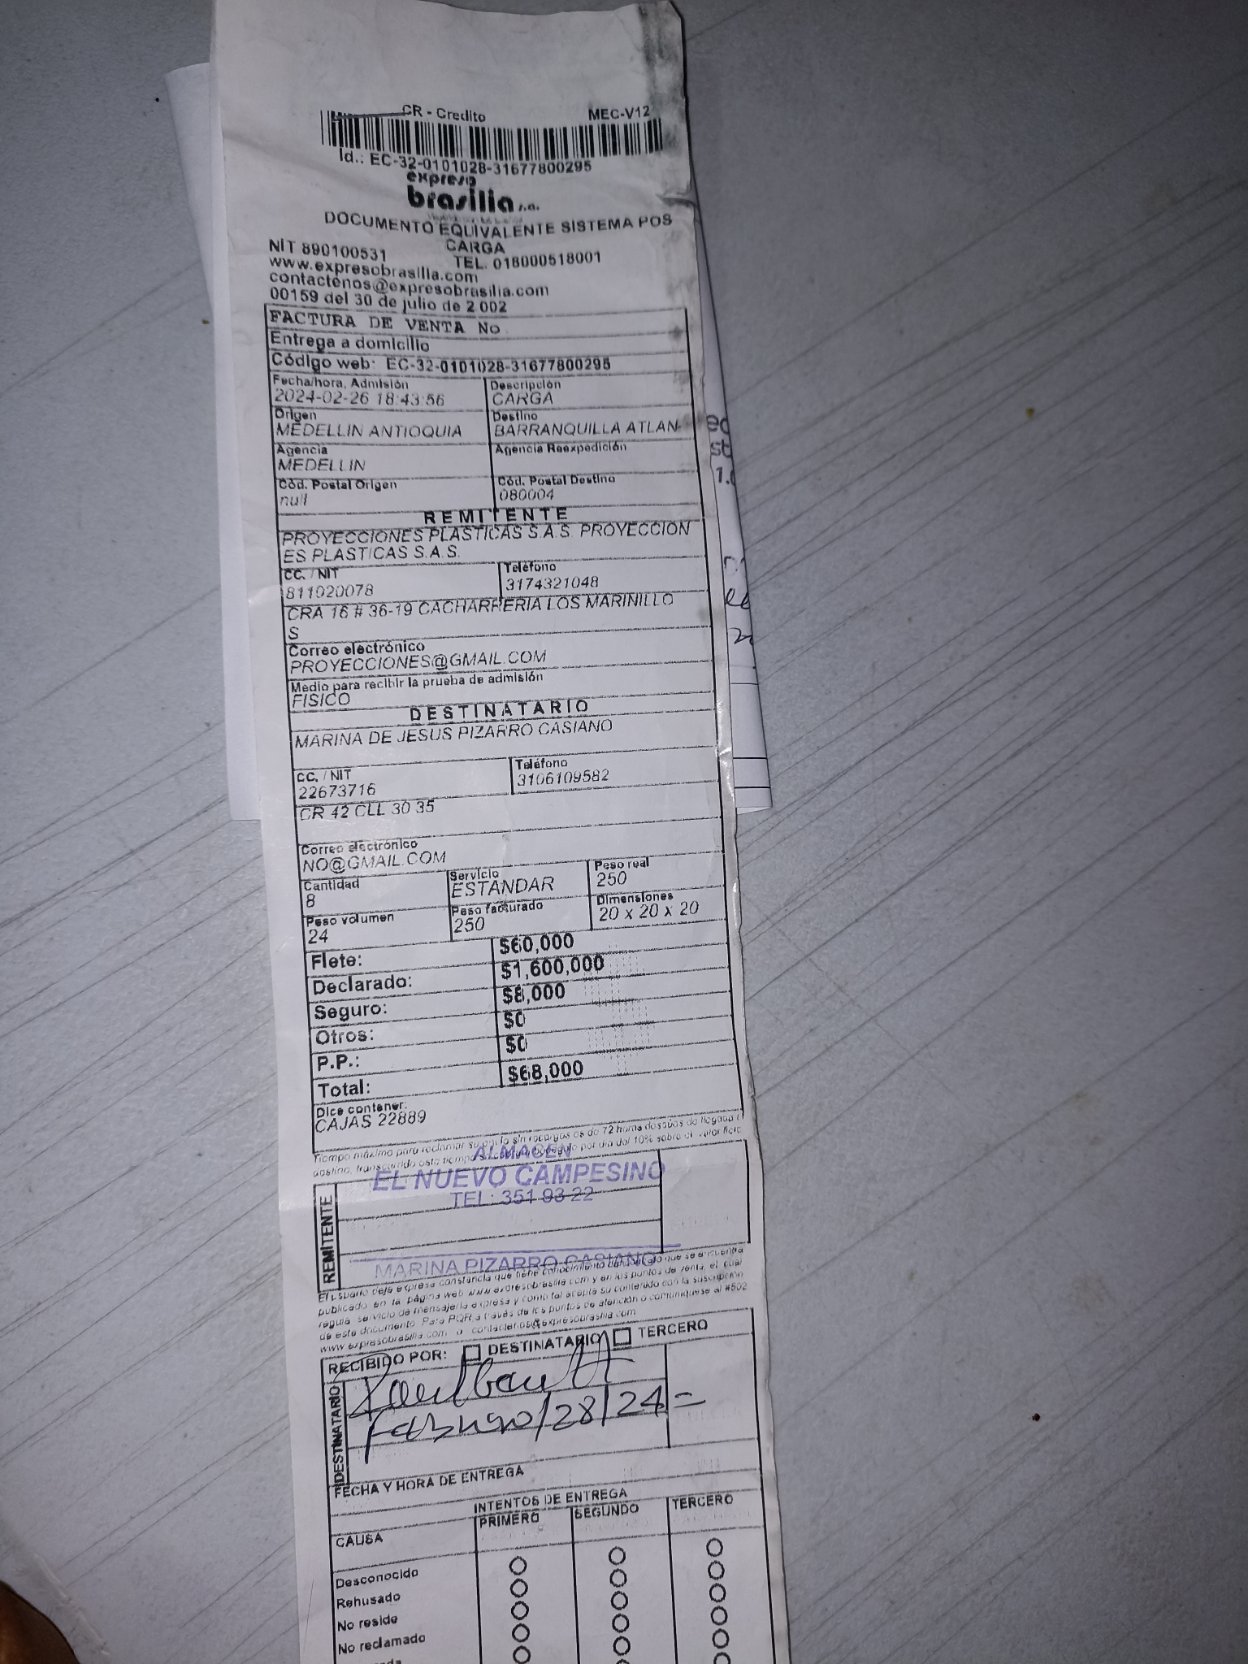 CR - Credito MEC-V12
Id.: EC-32-0101028-31677800295
expreso
brasilia s.a.
DOCUMENTO EQUIVALENTE SISTEMA POS
CARGA
NIT 890100531 TEL. 018000518001
www.expresobrasilia.com
contactenos@expresobrasilia.com
00159 del 30 de julio de 2 002
FACTURA DE VENTA No
Entrega a domicilio
Código web: EC-32-0101028-31677800295
Fecha/hora, Admisión Descripción
2024-02-26 18:43:56 CARGA
Origen Destino
MEDELLIN ANTIOQUIA BARRANQUILLA ATLAN
Agencia Agencia Reexpedición
MEDELLIN
Cód. Postal Origen Cód. Postal Destino
null 080004
REMITENTE
PROYECCIONES PLASTICAS S.A.S. PROYECCION
ES PLASTICAS S.A.S.
CC. / NIT Teléfono
811020078 3174321048
CRA 16 # 36-19 CACHARRERIA LOS MARINILLO
S
Correo electrónico
PROYECCIONES@GMAIL.COM
Medio para recibir la prueba de admisión
FISICO
DESTINATARIO
MARINA DE JESUS PIZARRO CASIANO
CC. / NIT Teléfono
22673716 3106109582
CR 42 CLL 30 35
Correo electrónico
NO@GMAIL.COM
Cantidad Servicio Peso real
8 ESTANDAR 250
Peso volumen Peso facturado Dimensiones
24 250 20 x 20 x 20
Flete: $60,000
Declarado: $1,600,000
Seguro: $8,000
Otros: $0
P.P.: $0
Total: $68,000
Dice contener:
CAJAS 22889
Tiempo máximo para reclamar sin recargos es de 72 horas después de llegada a
destino, transcurrido este tiempo por día del 10% sobre el valor flete
ALMACEN
EL NUEVO CAMPESINO
TEL: 351 93 22
REMITENTE
MARINA PIZARRO CASIANO
El usuario deja expresa constancia que tiene conocimiento del que se encuentra
publicado en la página web www.expresobrasilia.com y en los puntos de venta, el cual
regula servicio de mensajería expresa y como tal acepta su contenido con la suscripción
de este documento. Para PQR a través de los puntos de atención o comuníquese al #502
www.expresobrasilia.com o contactenos@expresobrasilia.com
RECIBIDO POR: DESTINATARIO TERCERO
DESTINATARIO
Febrero/28/24=
FECHA Y HORA DE ENTREGA
INTENTOS DE ENTREGA
CAUSA PRIMERO SEGUNDO TERCERO
Desconocido
Rehusado
No reside
No reclamado